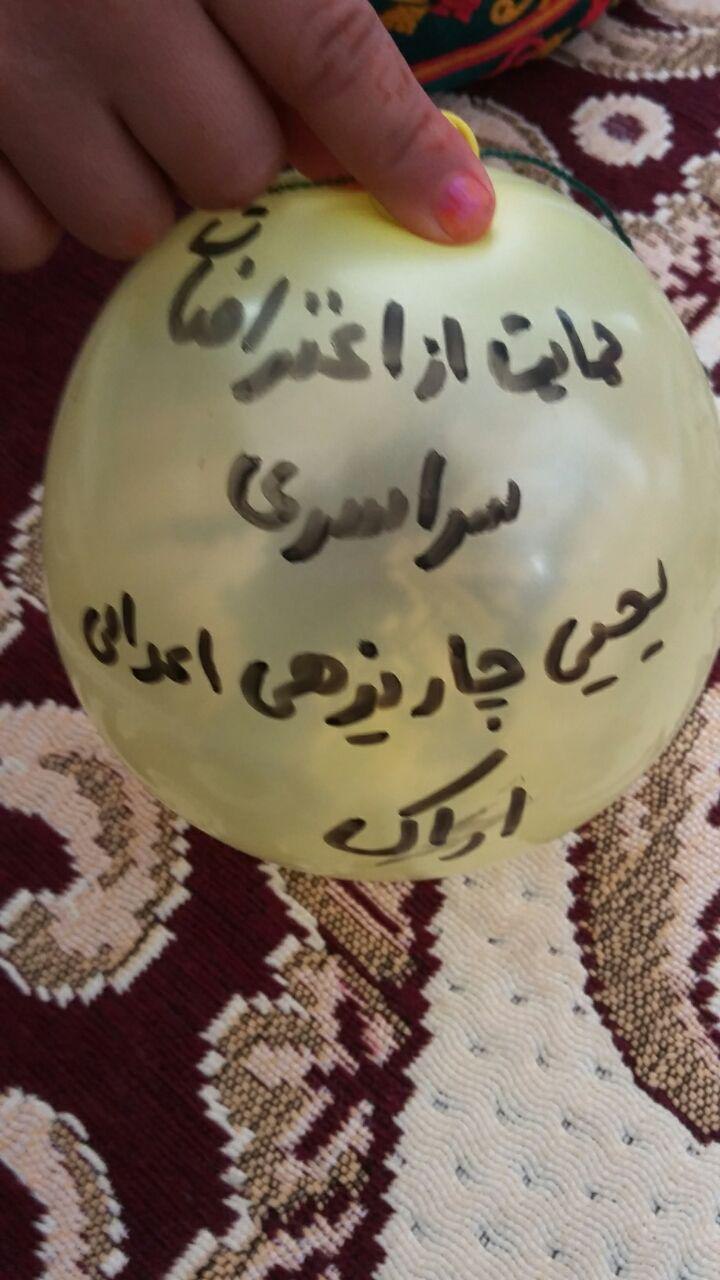 حمایت از اعتراضات
سراسری
یحیی چاریزهی اعدامی
اراک